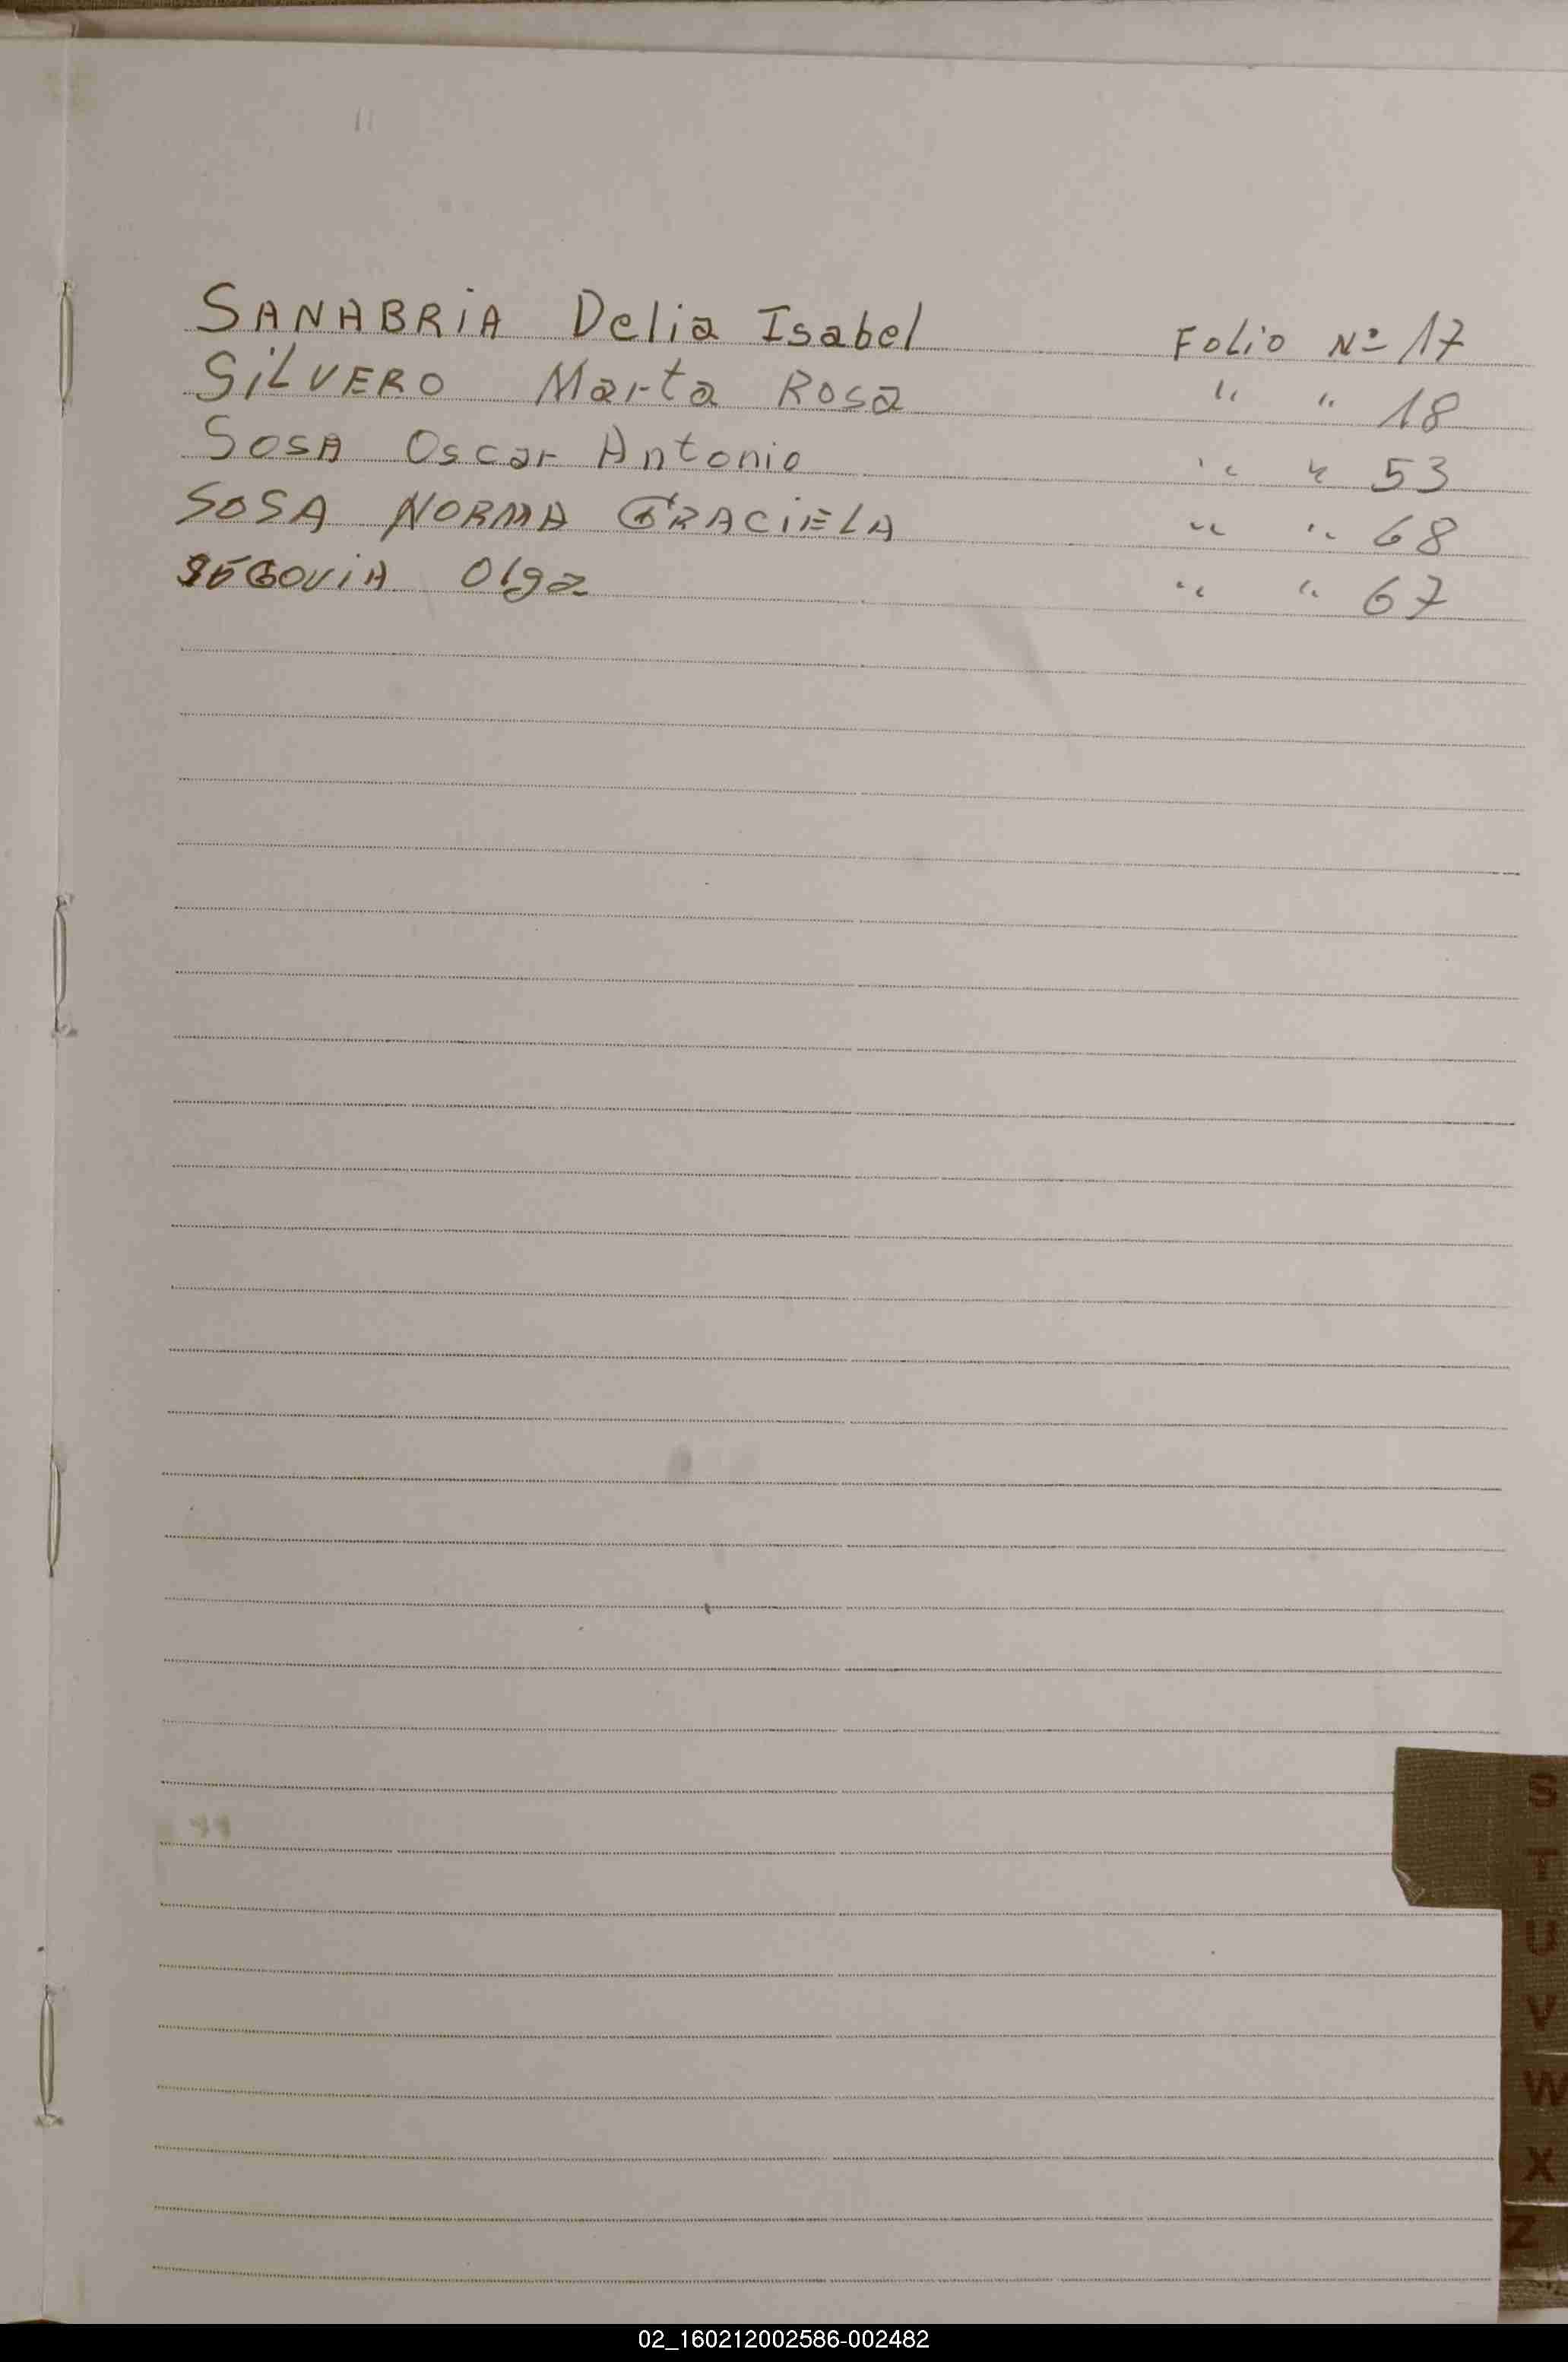 SANABRiA Delia Isabel Folio Nº 17
SiLVERO Marta Rosa " " 18
SOSA Oscar Antonio " " 53
SOSA NORMA GRACiELA " " 68
SEGOViA Olga " " 67
S
T
U
V
W
X
Z
02_160212002586-002482